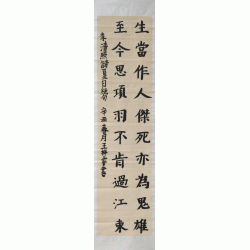 生當作人傑死亦為鬼雄
至今思項羽不肯過江東
李清照詩夏日絕句 辛丑春月王書